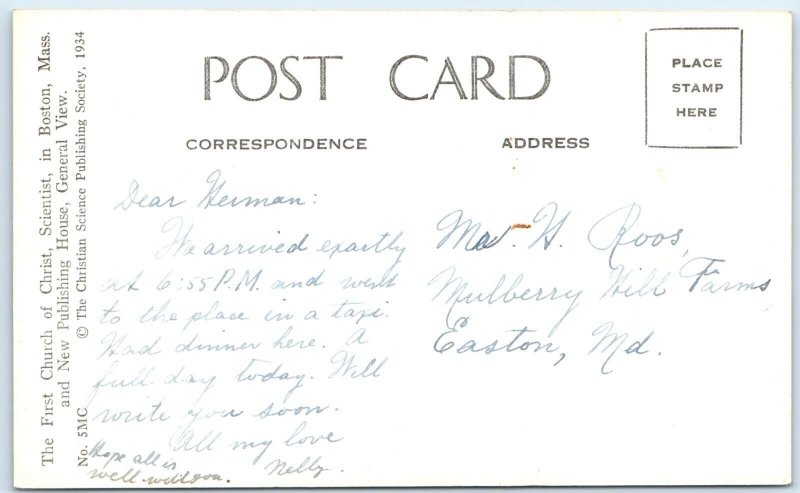 The First Church of Christ, Scientist, in Boston, Mass.
and New Publishing House, General View.
No. 5MC © The Christian Science Publishing Society, 1934
POST CARD
CORRESPONDENCE
ADDRESS
PLACE
STAMP
HERE
Dear Herman:
We arrived exactly
at 6:55 P.M. and went
to the place in a taxi.
Had dinner here. A
full day today. Will
write you soon.
All my love
Nelly.
Hope all is
well
Mr. H. Roos,
Mulberry Hill Farms,
Easton, Md.